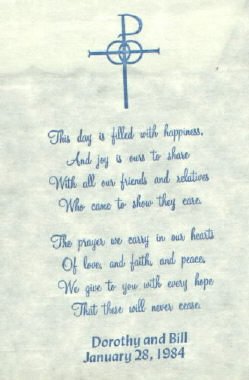 This day is filled with happiness,
And joy is ours to share
With all our friends and relatives
Who came to show they care.
The prayer we carry in our hearts
Of love, and faith, and peace,
We give to you with every hope
That these will never cease.
Dorothy and Bill
January 28, 1984